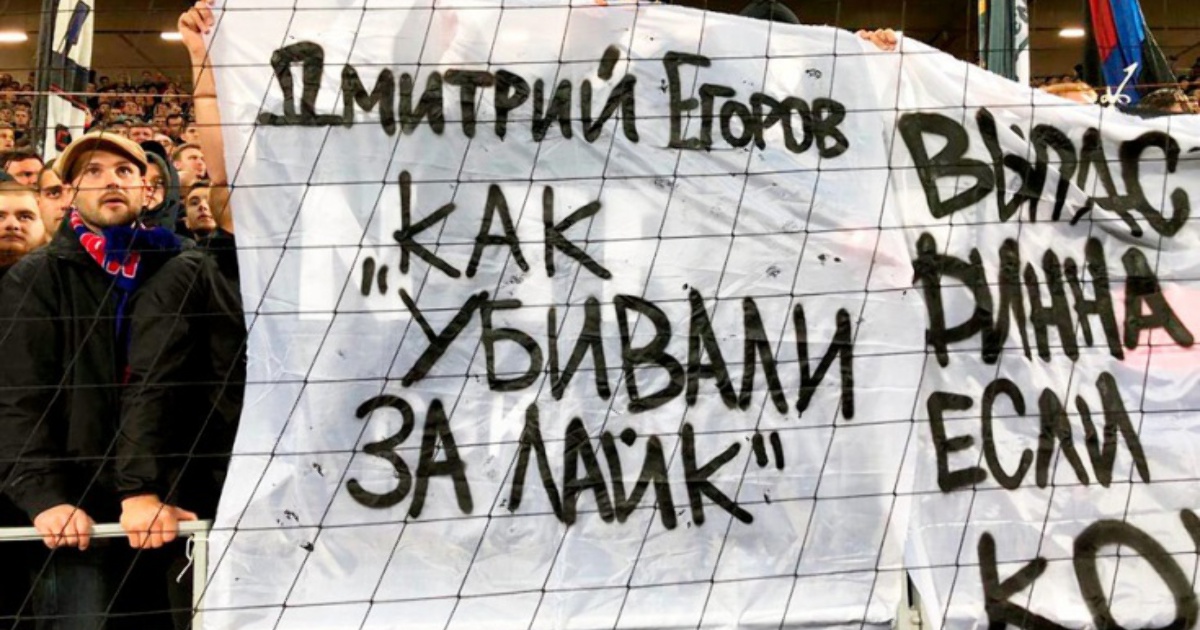 Дмитрий Егоров
"Как
убивали
за лайк"
вырас
ринна
если
ко